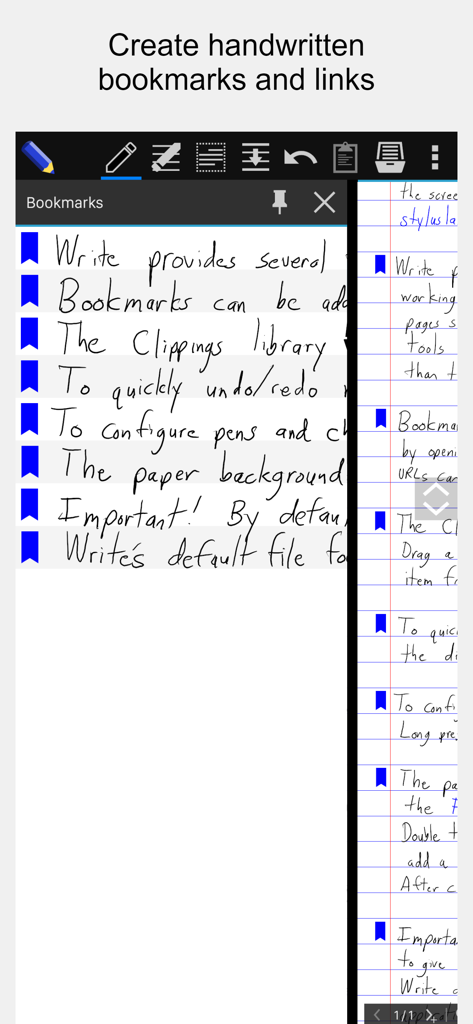 Create handwritten
bookmarks and links
Bookmarks
Write provides several
Bookmarks can be add
The Clippings library
To quickly undo/redo
To configure pens and ch
The paper background
Important! By defau
Write's default file fo
the scree
stylusla
Write p
working
pages s
tools
than t
Bookmar
by openi
URLs can
The Cl
Drag a
item fr
To quic
the di
To confi
Long pre
The pa
the
Double t
add a
After c
Importa
to give
Write
1/1